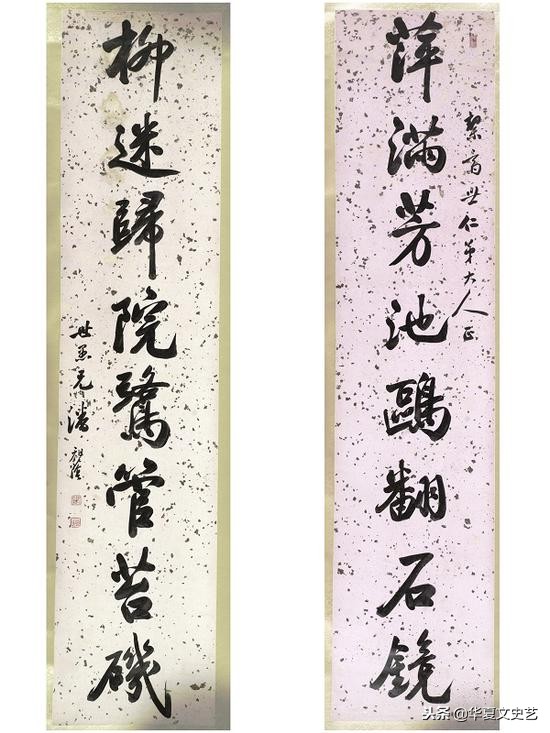 萍滿芳池鷗翻石鏡
絜齋世仁弟大人正
柳迷歸院鷺管苔磯
世愚兄潘祖蔭
头条@华夏文史艺